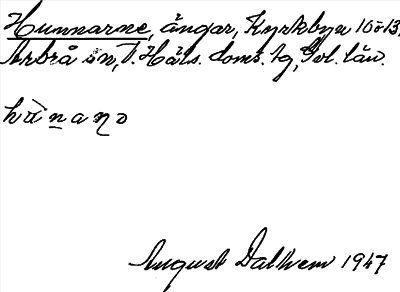 Hunnarne, ängar, Kyrkbyn 10 o 13,
Arbrå sn, V. Häls. doms. tg, Gvl. län.
hùnaṇo
August Dalhem 1947